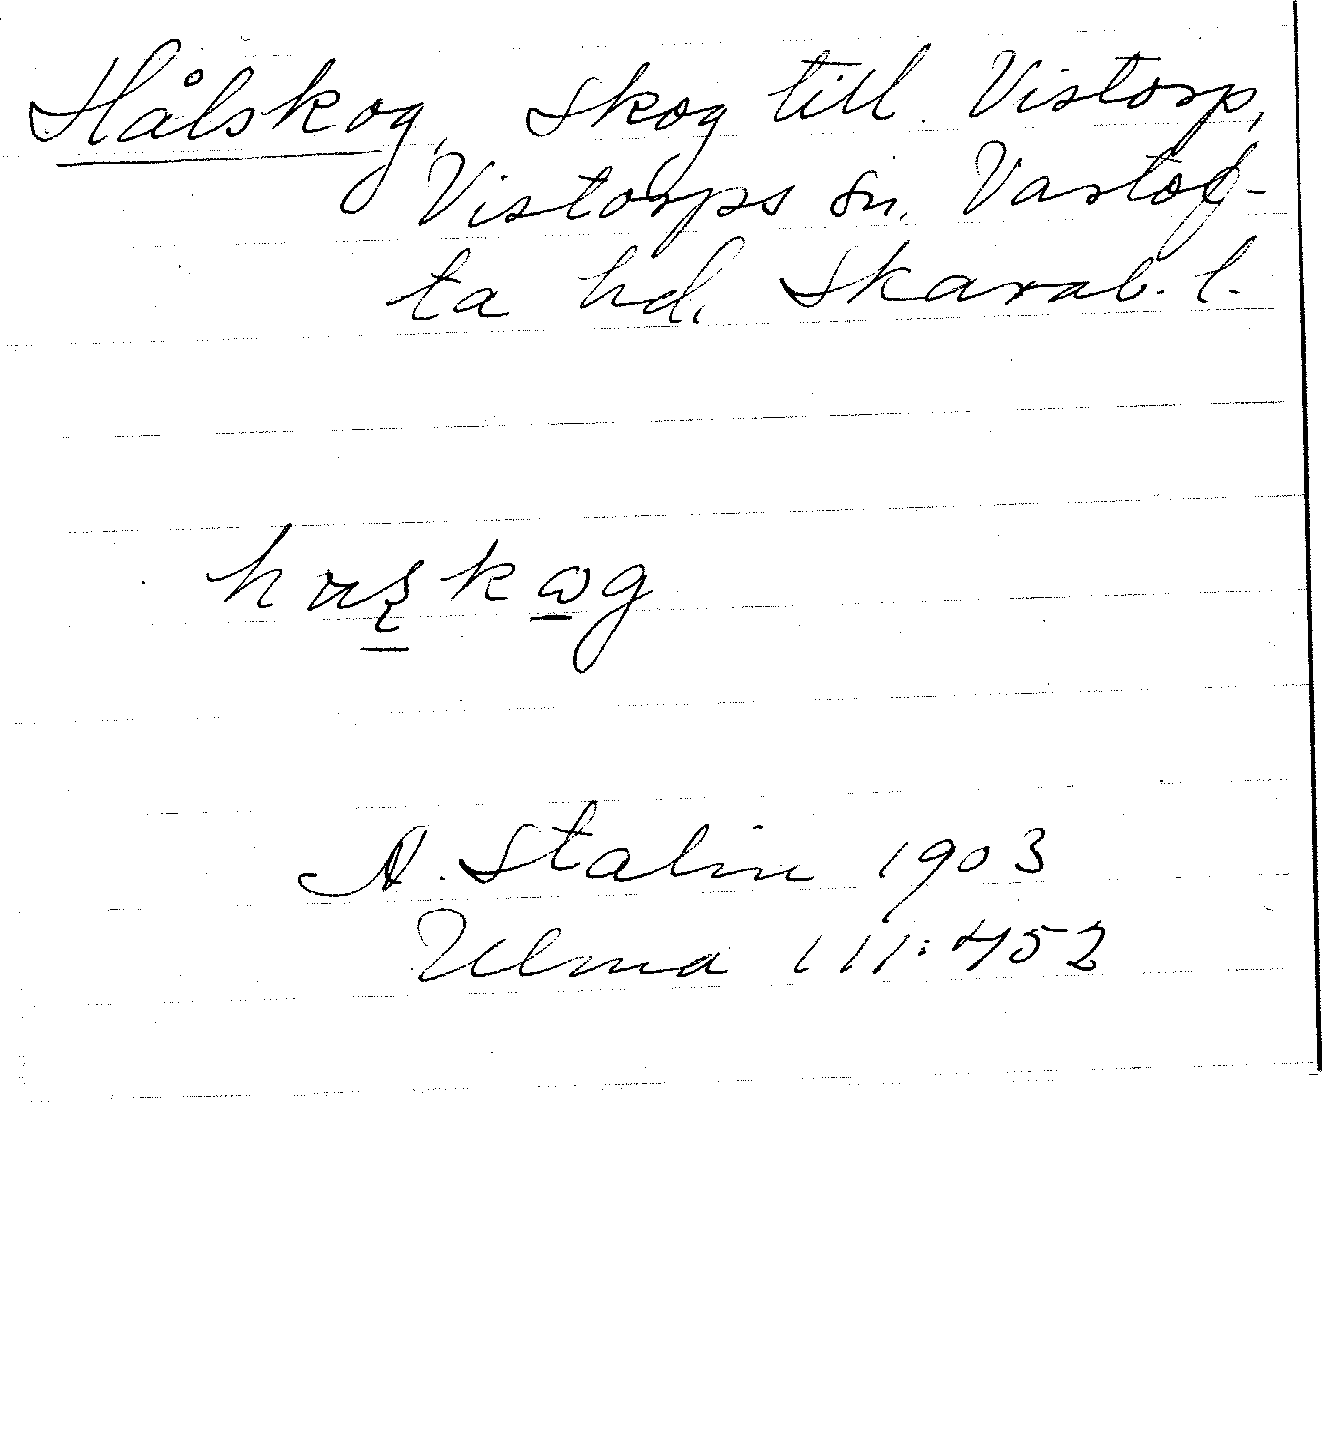 Hålskog, Skog till Vistorp,
Vistorps sn. Vartof-
ta hd. Skarab. l.
A. Stalin 1903
Ulma 111:452